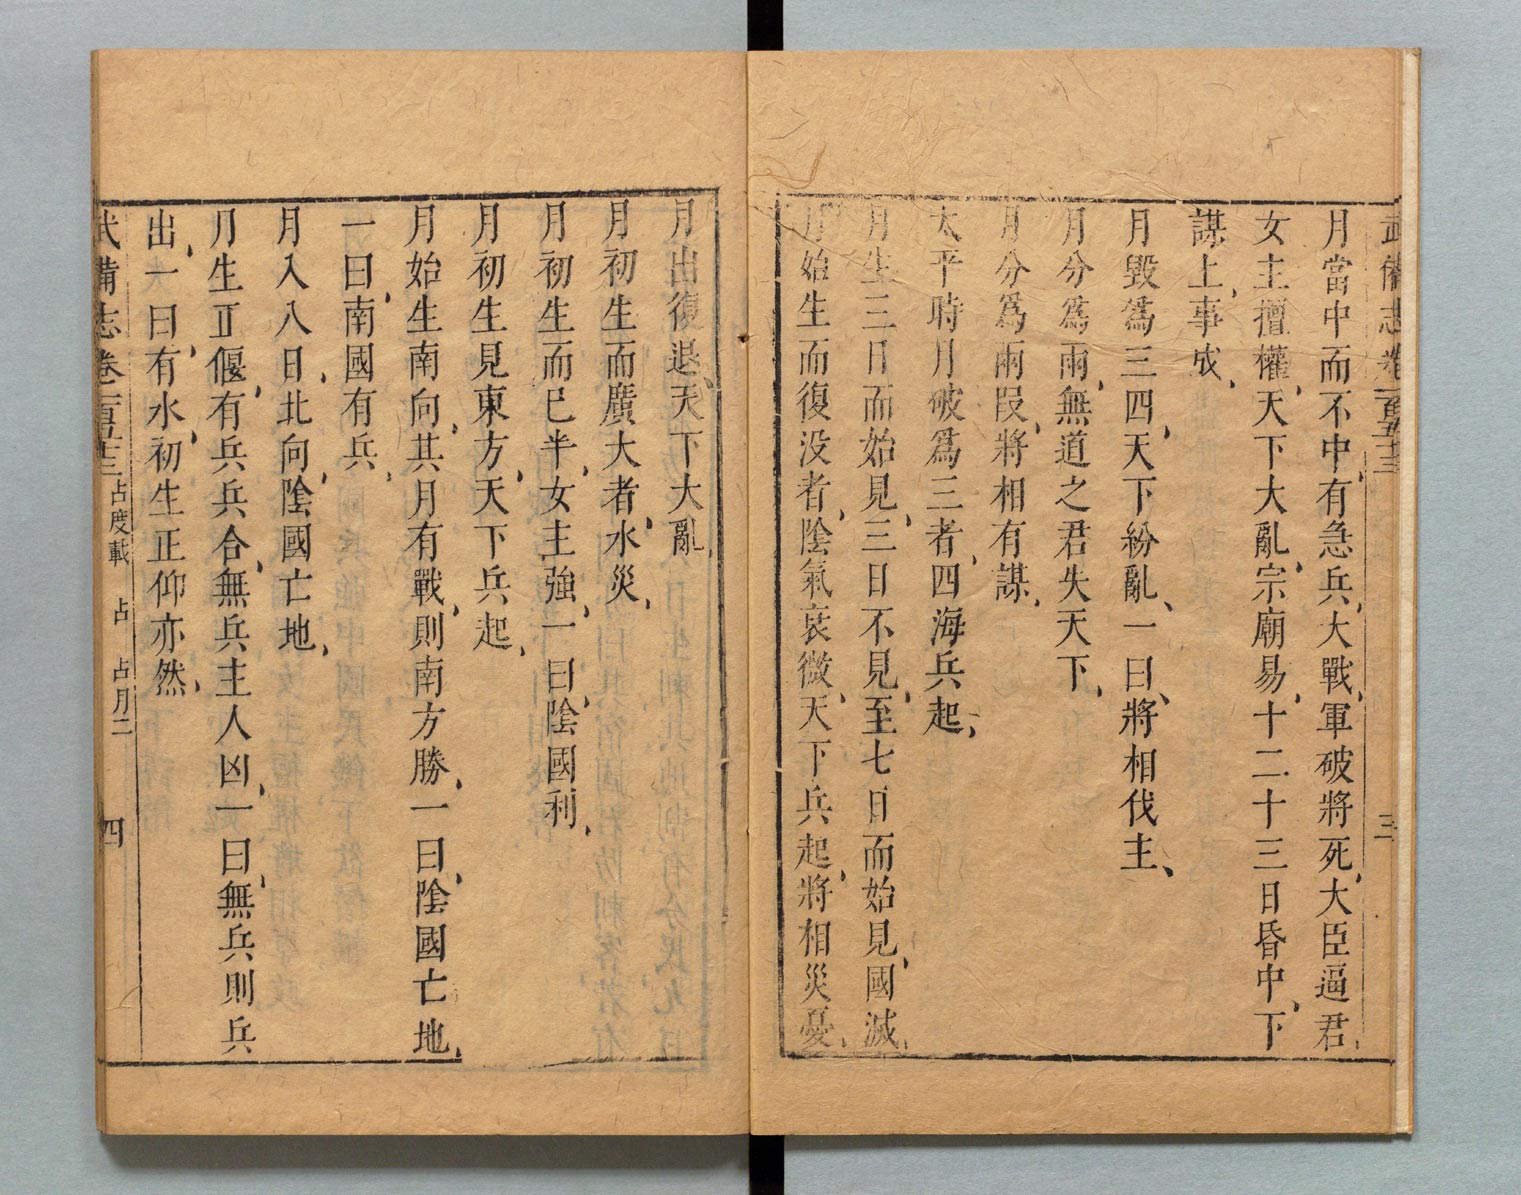 武備志卷一百五十三 三
月當中而不中有急兵大戰軍破將死大臣逼君
女主擅權天下大亂宗廟易十二十三日昏中下
謀上事成
月毀爲三四天下紛亂一曰將相伐主
月分爲兩無道之君失天下
月分爲兩段將相有謀
太平時月破爲三者四海兵起
月生三日而始見三日不見至七日而始見國滅
月始生而復没者陰氣衰微天下兵起將相災憂
月出復退天下大亂
月初生而廣大者水災
月初生而已半女主強一曰陰國利
月初生見東方天下兵起
月始生南向其月有戰則南方勝一曰陰國亡地
一曰南國有兵
月入八日北向陰國亡地
月生正偃有兵兵合無兵主人凶一曰無兵則兵
出一曰有水初生正仰亦然
武備志卷一百五十三 占度載 占 占月二 四